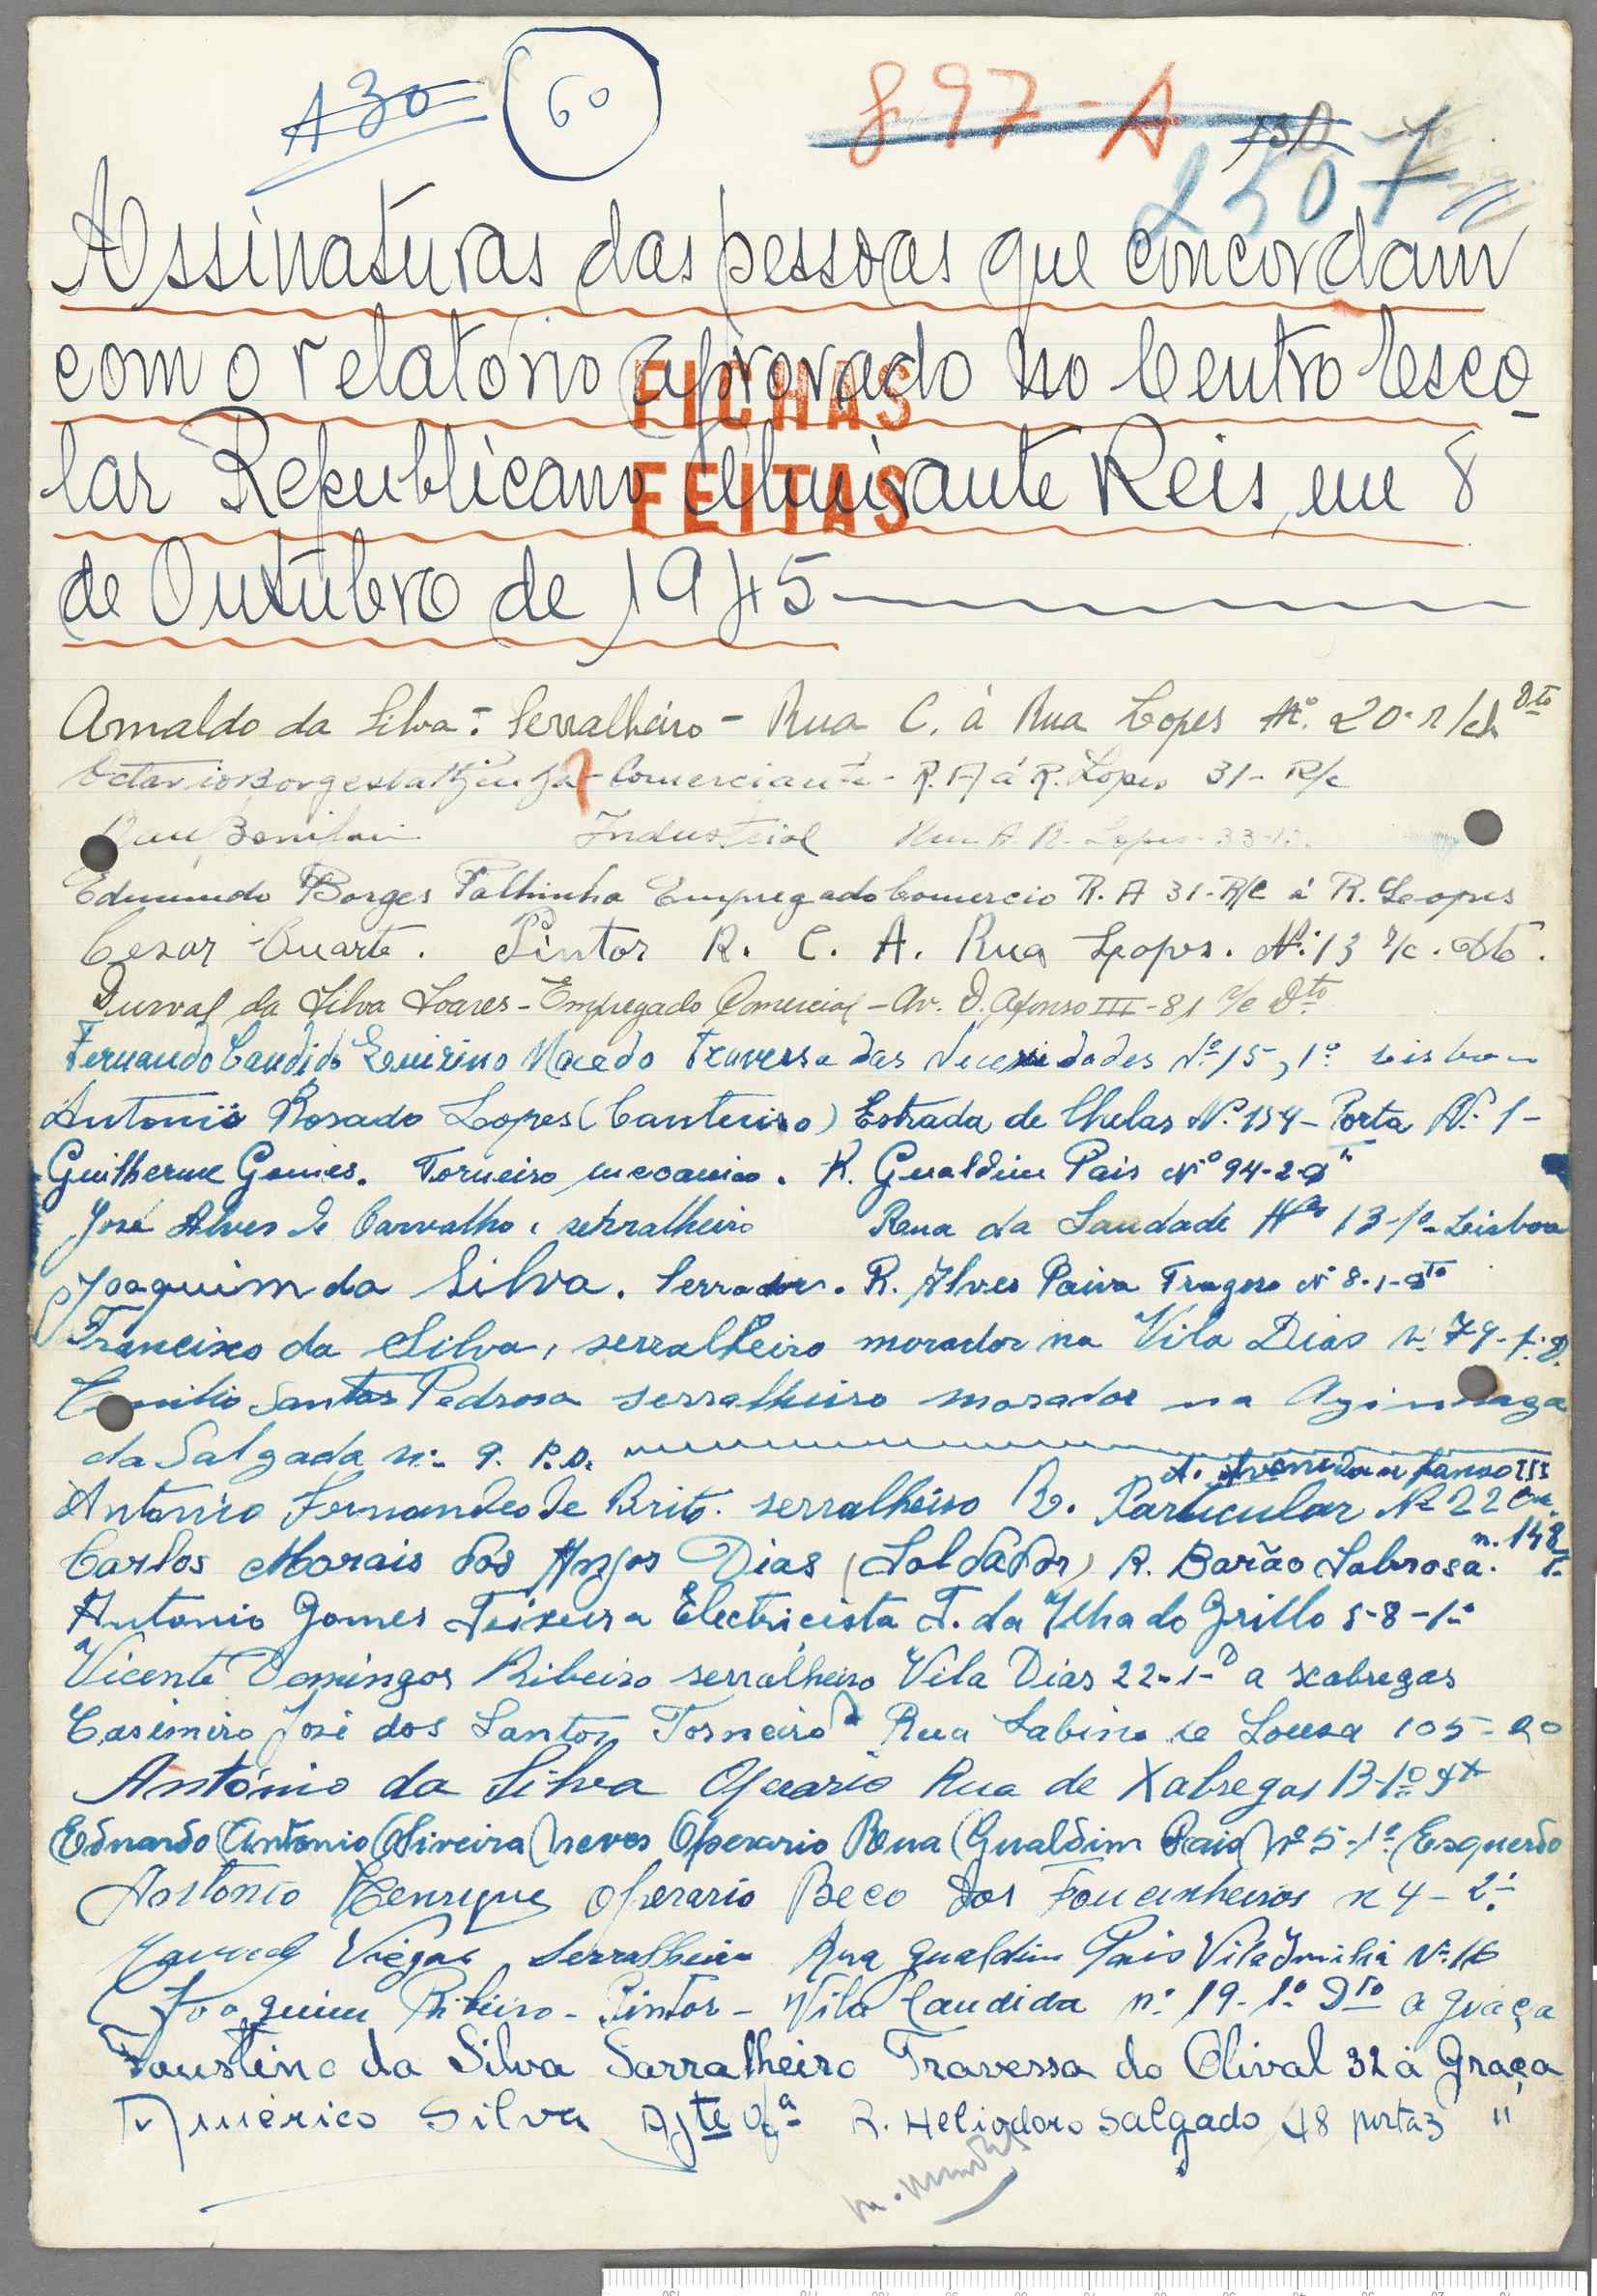 A30 60 897-A 130
2507
Assinaturas das pessoas que concordam
com o relatório aprovado no Centro Esco-
lar Republicano Almirante Reis, em 8
de Outubro de 1945
FICHAS
FEITAS
Arnaldo da Silva - Serralheiro - Rua C. á Rua Lopes Nº. 20 - r/ch Dto
Octavio Borges - Comerciante - R. A á R. Lopes 31 - R/c
Industrial Rua A. R. Lopes - 33-1º
Edmundo Borges Palhinha Empregado Comercio R. A 31-R/C á R. Lopes
Cesar Duarte. Pintor R. C. A. Rua Lopes. Nº 13 r/c. Dto.
Durval da Silva Soares - Empregado Comercial - Av. D. Afonso III - 81 r/c Dto
Fernando Candido Quirino Macedo Travessa das Necessidades Nº 15, 1º Lisboa
Antonio Rosado Lopes (Canteiro) Estrada de Chelas Nº. 154 - Porta Nº. 1 -
Guilherme Gomes. Torneiro mecanico. R. Gualdim Pais Nº 94-2-
José Alves de Carvalho, serralheiro Rua da Saudade Nº 13-1º Lisboa
Joaquim da Silva. Serrador. R. Alves Paiva Fragoso Nº 8-1-Dto
Francisco da Silva, serralheiro morador na Vila Dias nº 79-1º D.
Emilio Santos Pedrosa serralheiro morador na Azinhaga
da Salgada nº 9. P.D.
A. Avenida Afonso III
Antonio Fernandes de Brito. serralheiro R. Particular Nº 22
Carlos Morais dos Anjos Dias (Soldador) R. Barão Sabrosa. n. 148
Antonio Gomes Teixeira Electricista T. da Ilha do Grillo 5-8-1º
Vicente Domingos Ribeiro serralheiro Vila Dias 22-1-D a Xabregas
Casimiro José dos Santos Torneiro Rua Sabino de Sousa 105
António da Silva Operario Rua de Xabregas 13-1º
Eduardo Antonio Oliveira Neves Operario Rua Gualdim Pais Nº 5-1º Esquerdo
Antonio Henrique Operario Beco dos Toucinheiros n 4 - 2º
Manuel Viegas Serralheiro Rua Gualdim Pais Vila Emilia Nº 16
Joaquim Ribeiro - Pintor - Vila Candida nº 19-1º Dto a Graça
Faustino da Silva Sarralheiro Travessa do Olival 32 à Graça
Américo Silva Ajte R. Heliodoro Salgado 48 porta 3 "